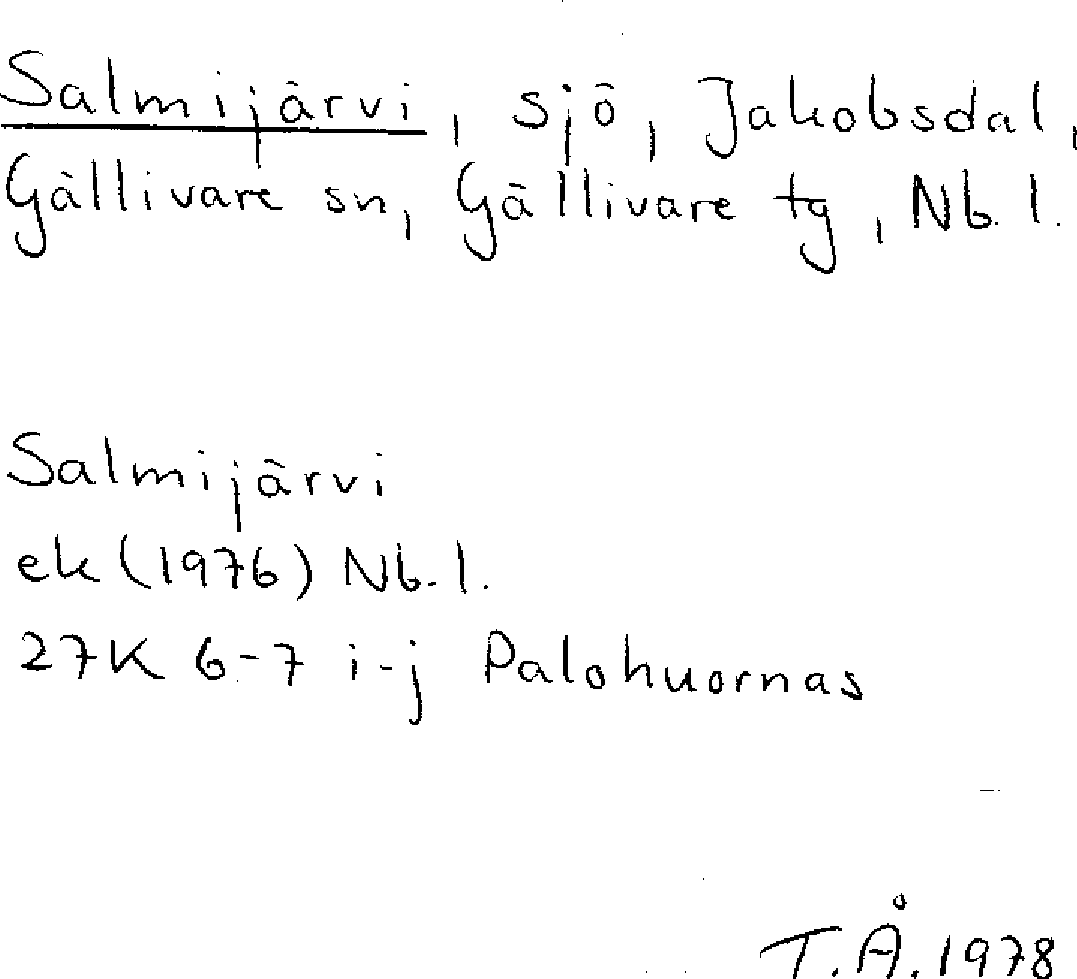 Salmijärvi, sjö, Jakobsdal,
Gällivare sn, Gällivare tg, Nb. l.
Salmijärvi
ek (1976) Nb. l.
27K 6-7 i-j Palohuornas
T.Å. 1978